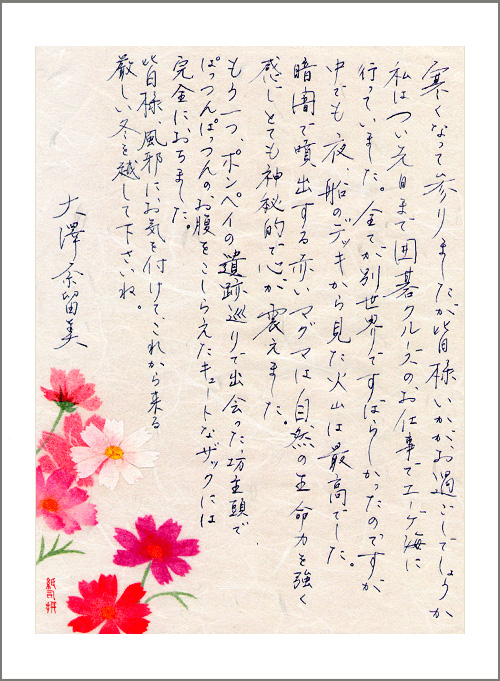 寒くなって参りましたが皆様いかがお過ごしでしょうか
私はつい先日まで囲碁クルーズのお仕事でエーゲ海に
行っていました。全てが別世界ですばらしかったのですが
中でも夜、船のデッキから見た火山は最高でした。
暗闇で噴出する赤いマグマは自然の生命力を強く
感じとても神秘的で心が震えました。
もう一つ、ポンペイの遺跡巡りで出会った坊主頭で
ぽっつんぽっつんのお腹をこしらえたキュートなザックには
完全におちました。
皆様、風邪にお気を付けてこれから来る
厳しい冬を越して下さいね。
大澤奈留美